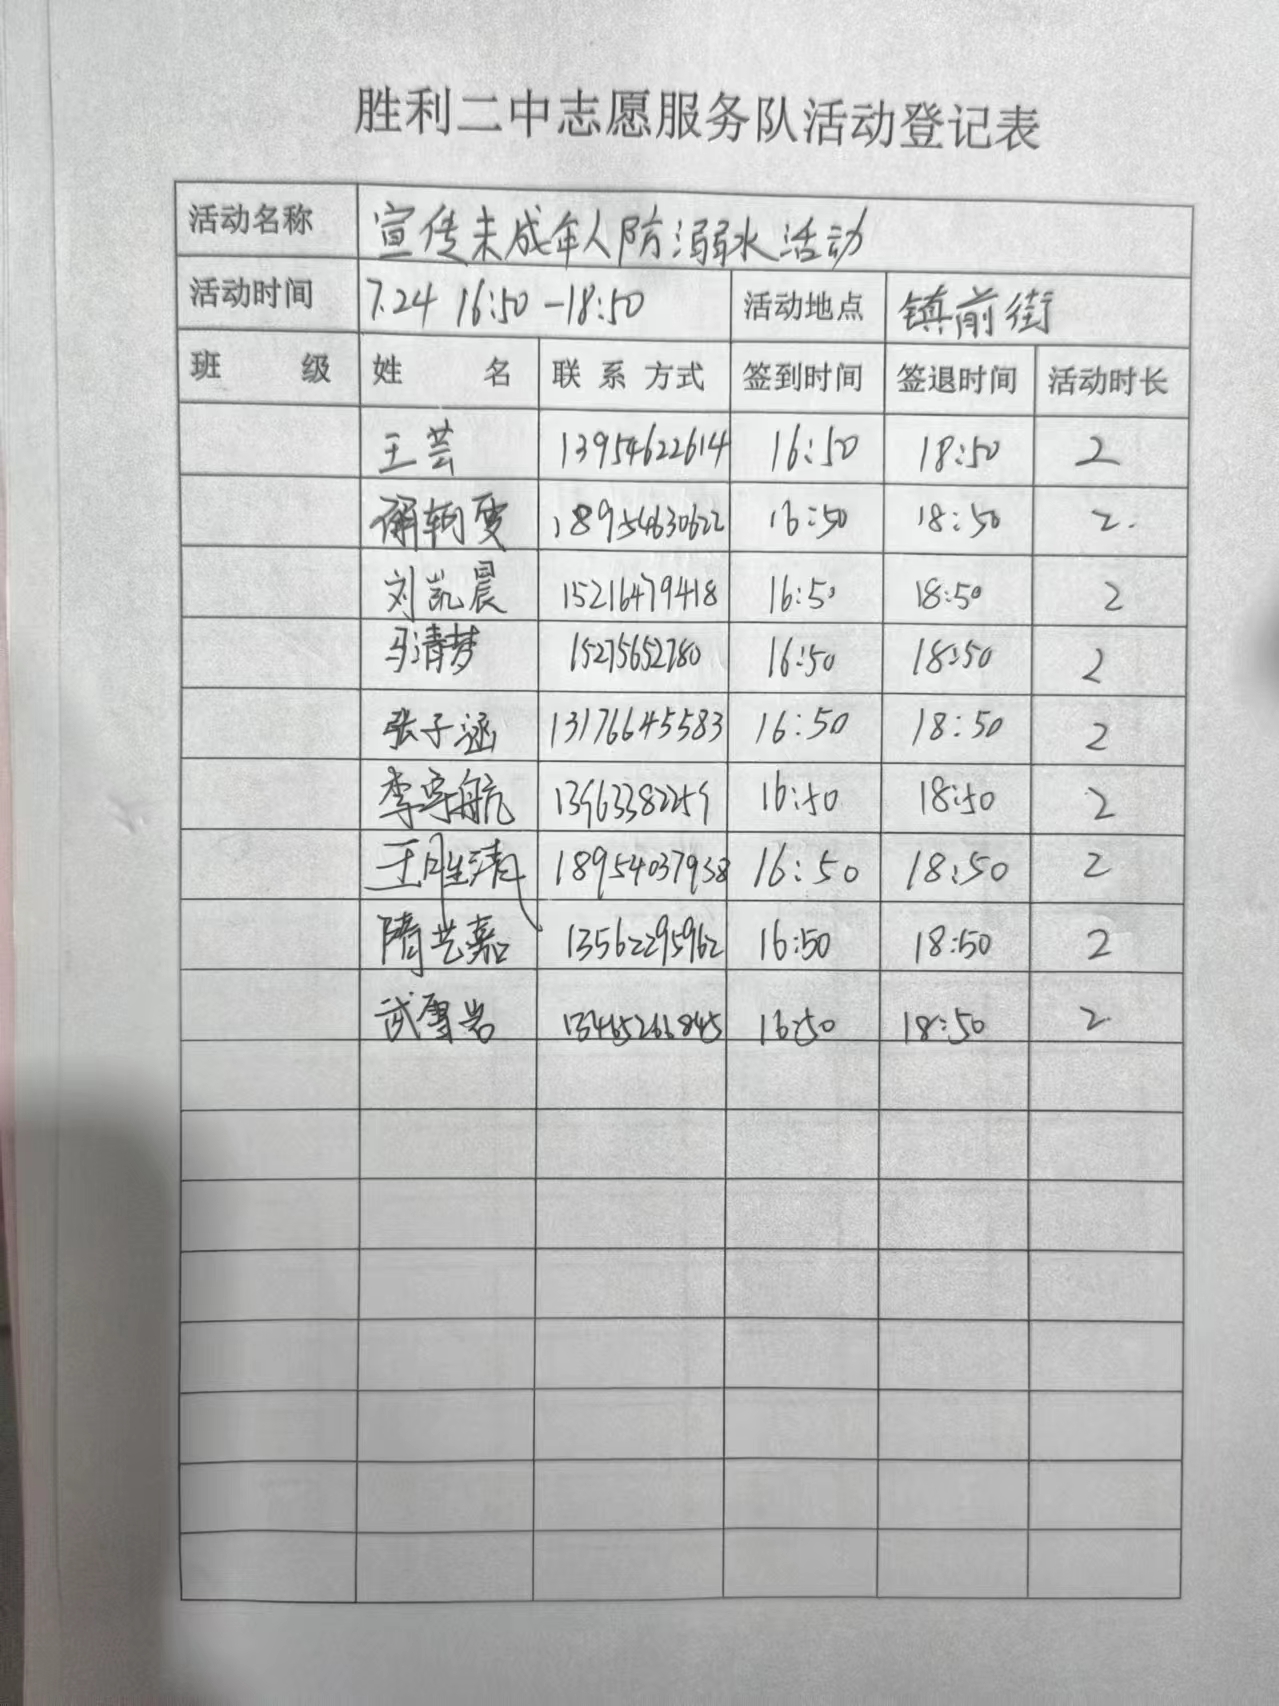 胜利二中志愿服务队活动登记表
活动名称 宣传未成年人防溺水活动
活动时间 7.24 16:50-18:50 活动地点 镇前街
班 级 姓 名 联系方式 签到时间 签退时间 活动时长
王芸 13954622614 16:50 18:50 2
18954630622 16:50 18:50 2.
刘凯晨 15216479418 16:50 18:50 2
马清梦 15275652780 16:50 18:50 2
张子涵 13176645583 16:50 18:50 2
李宇航 16:50 18:50 2
王胜清 18954037938 16:50 18:50 2
隋艺嘉 13562295962 16:50 18:50 2
武雪岩 13465266845 16:50 18:50 2